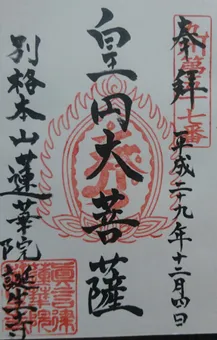 奉拝
平成二十九年十二月四日
皇円大菩薩
別格本山蓮華院誕生寺